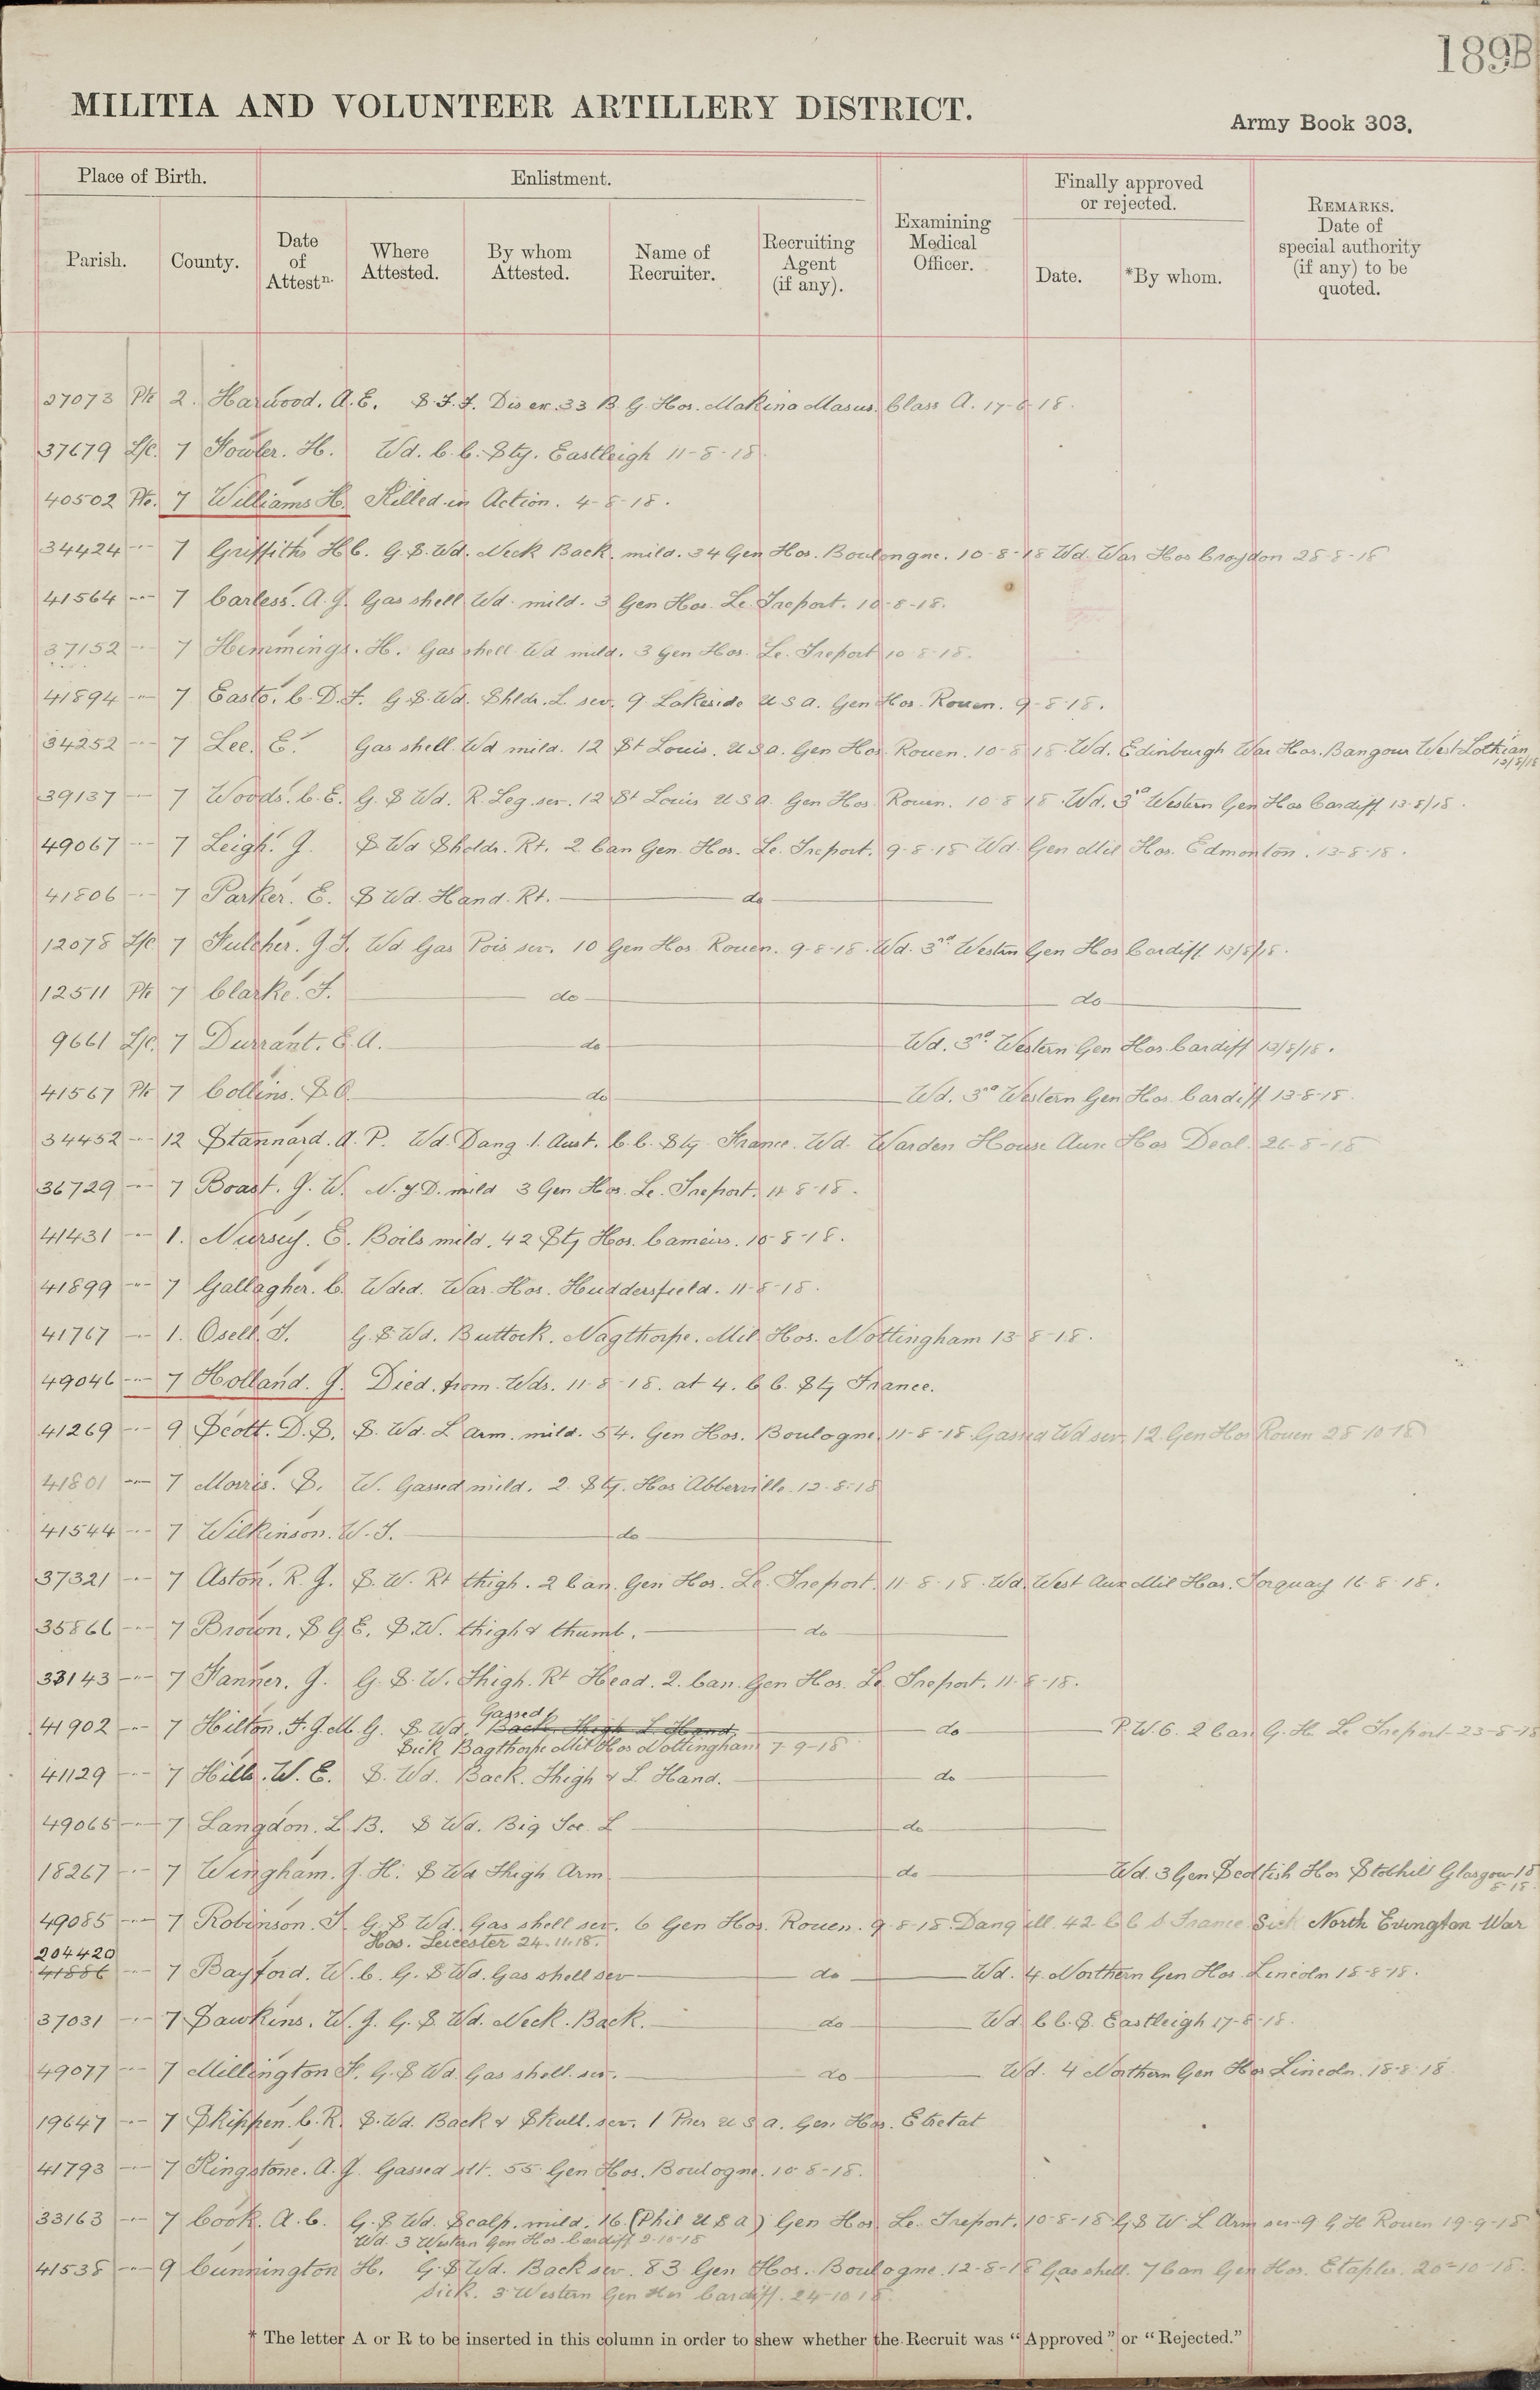 189B
MILITIA AND VOLUNTEER ARTILLERY DISTRICT.
Army Book 303.
Place of Birth.
Enlistment.
Finally approved or rejected.
Parish.
County.
Date of Attestn.
Where Attested.
By whom Attested.
Name of Recruiter.
Recruiting Agent (if any).
Examining Medical Officer.
Date.
*By whom.
REMARKS. Date of special authority (if any) to be quoted.
27073 Pte 2. Harwood. A.E. S.I.I. Dis ex. 33 B. G. Hos. Makina Masus. Class A. 17-6-18.
37679 L/C. 7 Fowler. H. Wd. C.C. Stg. Eastleigh 11-8-18
40502 Pte. 7 Williams H. Killed in Action. 4-8-18.
34424 -"- 7 Griffiths H C. G.S. Wd. Neck Back. mild. 34 Gen Hos. Boulongne. 10-8-18 Wd. War Hos Croydon 28-8-18
41564 -"- 7 Carless. A.J. Gas shell Wd. mild. 3 Gen Hos. Le. Treport. 10-8-18.
37152 -"- 7 Hemmings. H. Gas shell Wd mild. 3 Gen Hos. Le. Treport 10-8-18.
41894 -"- 7 Easto. C.D.F. G.S. Wd. Shldr. L. sev. 9. Lakeside U S A. Gen Hos. Rouen. 9-8-18.
34252 -"- 7 Lee. E. Gas shell Wd mild. 12 St Louis. U.S.A. Gen Hos Rouen. 10-8-18. Wd. Edinburgh War Hos. Bangour West Lothian 13/8/18
39137 -"- 7 Woods. C.E. G.S Wd. R. Leg. sev. 12 St Louis U S A. Gen Hos Rouen. 10-8-18. Wd. 3rd Western Gen Hos Cardiff 13-8/18.
49067 -"- 7 Leigh. J. S Wd Sholdr. Rt. 2 Can Gen. Hos. Le. Treport. 9-8-18 Wd. Gen Mil Hos. Edmonton. 13-8-18.
41806 -"- 7 Parker. E. S Wd. Hand. Rt. do
12078 L/C 7 Fulcher. J.J. Wd Gas Pois sev. 10 Gen Hos Rouen. 9-8-18. Wd. 3rd Western Gen Hos Cardiff 13/8/18.
12511 Pte 7 Clarke. F. do do
9661 L/C. 7 Durrant. E.A. do Wd. 3rd Western Gen Hos. Cardiff 13/8/18.
41567 Pte 7 Collins. S.O. do Wd. 3rd Western Gen Hos. Cardiff 13-8-18.
34452 -"- 12 Stannard. A.P. Wd. Dang. 1. Aust. C.C. Stg France. Wd. Warden House Aux Hos Deal. 26-8-18
36729 -"- 7 Boast. J.W. N.Y.D. mild 3 Gen Hos. Le. Treport. 11-8-18.
41431 -"- 1. Nursey. E. Boils mild. 42 Stg Hos. Cameirs. 10-8-18.
41899 -"- 7 Gallagher. C. Wded. War. Hos. Huddersfield. 11-8-18.
41767 -"- 1. Osell. J. G.S. Wd. Buttock. Nagthorpe. Mil Hos. Nottingham 13-8-18.
49046 -"- 7 Holland. J. Died. from. Wds. 11-8-18. at 4. C C. Stg France.
41269 -"- 9 Scott. D.S. S. Wd. L arm. mild. 54. Gen Hos. Boulogne 11-8-18. Gassed Wd sev. 12 Gen Hos Rouen 28-10-18
41801 -"- 7 Morris. S. W. Gassed mild. 2. Stg. Hos Abberville. 12-8-18
41544 -"- 7 Wilkinson. W.J. do
37321 -"- 7 Aston. R.J. S.W. Rt thigh. 2 Can. Gen Hos. Le. Treport. 11-8-18. Wd. West Aux Mil Hos. Torquay 16-8-18.
35866 -"- 7 Brown. S G E. S.W. thigh & thumb. do
33143 -"- 7 Fanner. J. G.S.W. Thigh. Rt Head. 2. Can. Gen Hos. Le Treport. 11-8-18.
Gassed
41902 -"- 7 Hilton. F.J.M.G. S. Wd. Back, Thigh L Hand do P.W.6. 2 Can G. H. Le Treport 23-8-18
Sick Bagthorpe Mil Hos Nottingham 7-9-18
41129 -"- 7 Hills. W.E. S. Wd. Back. Thigh & L Hand. do
49065 -"- 7 Langdon. L B. S Wd. Big Toe. L do
18267 -"- 7 Wingham. J.H. S Wd Thigh Arm do Wd. 3 Gen Scottish Hos Stobhill Glasgow 18-8-18
49085 -"- 7 Robinson. J. G.S Wd. Gas shell sev. 6 Gen Hos. Rouen. 9-8-18. Dang ill. 42 C C S France Sick North Evington War
Hos. Leicester 24.11.18.
204420
41886 -"- 7 Bayford. W.C. G.S Wd. Gas shell sev do Wd. 4 Northern Gen Hos. Lincoln 18-8-18.
37031 -"- 7 Dawkins. W.J. G.S. Wd. Neck. Back. do Wd C C.S. Eastleigh 17-8-18.
49077 -"- 7 Millington F. G.S Wd Gas shell. sev. do Wd. 4 Northern Gen Hos Lincoln. 18-8-18.
19647 -"- 7 Skippen. C.R. S.Wd. Back & Skull. sev. 1 Pres U S A. Gen. Hos. Etretat
41793 -"- 7 Kingstone. A.J. Gassed slt. 55 Gen Hos. Boulogne. 10-8-18.
33163 -"- 7 Cook. A.C. G.S Wd. Scalp. mild. 16 (Phil U S A) Gen Hos Le. Treport. 10-8-18 G S W. L Arm sev 9 G H Rouen 19-9-18
Wd. 3 Western Gen Hos. Cardiff 9-10-18
41538 -"- 9 Cunnington H. G.S Wd. Back sev. 83 Gen Hos. Boulogne 12-8-18 Gas shell. 7 Can Gen Hos. Etaples. 20-10-18.
Sick. 3 Western Gen Hos Cardiff. 24-10-18.
* The letter A or R to be inserted in this column in order to shew whether the Recruit was "Approved" or "Rejected."